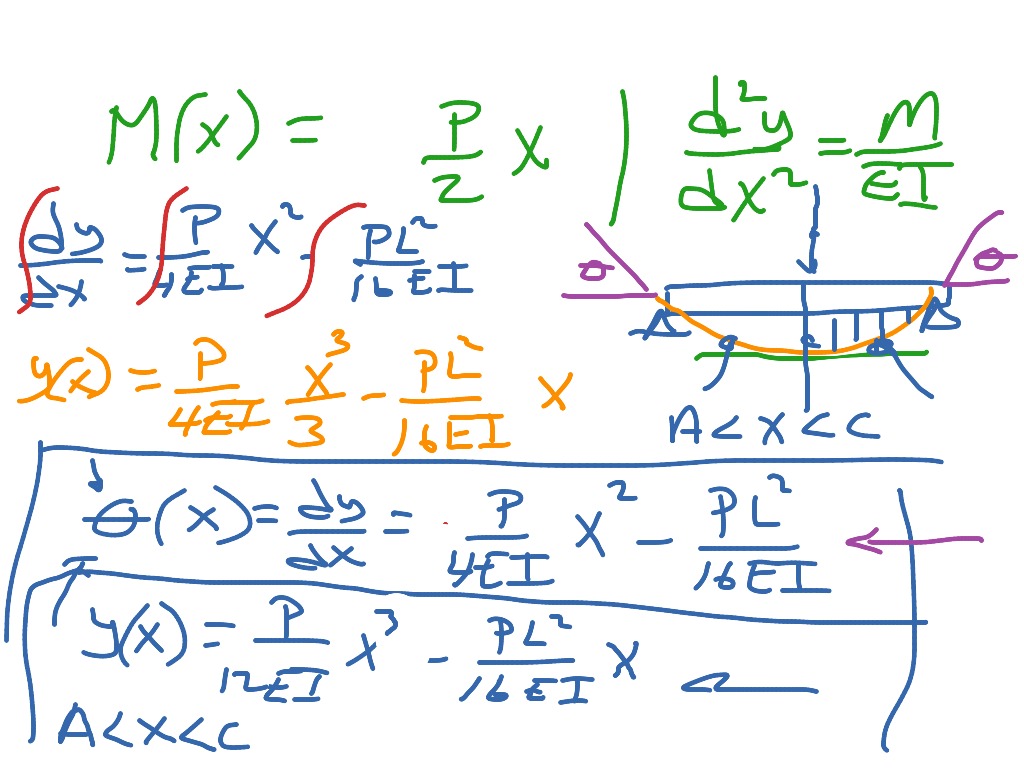 M(x) = P/2 x | d²y/dx² = M/EI
dy/dx = P/4EI x² - PL²/16EI
θ θ
y(x) = P/4EI x³/3 - PL²/16EI x
A < x < C
θ(x) = dy/dx = P/4EI x² - PL²/16EI
y(x) = P/12EI x³ - PL²/16EI x
A < x < C